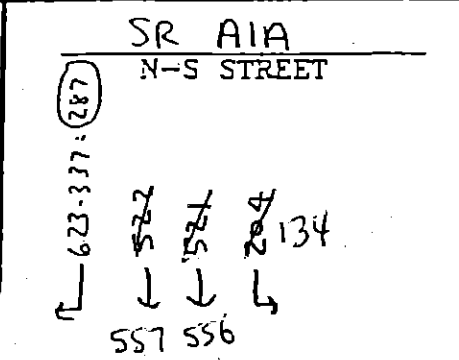 SR A1A
N-S STREET
623-337=287
522 521 204 134
557 556